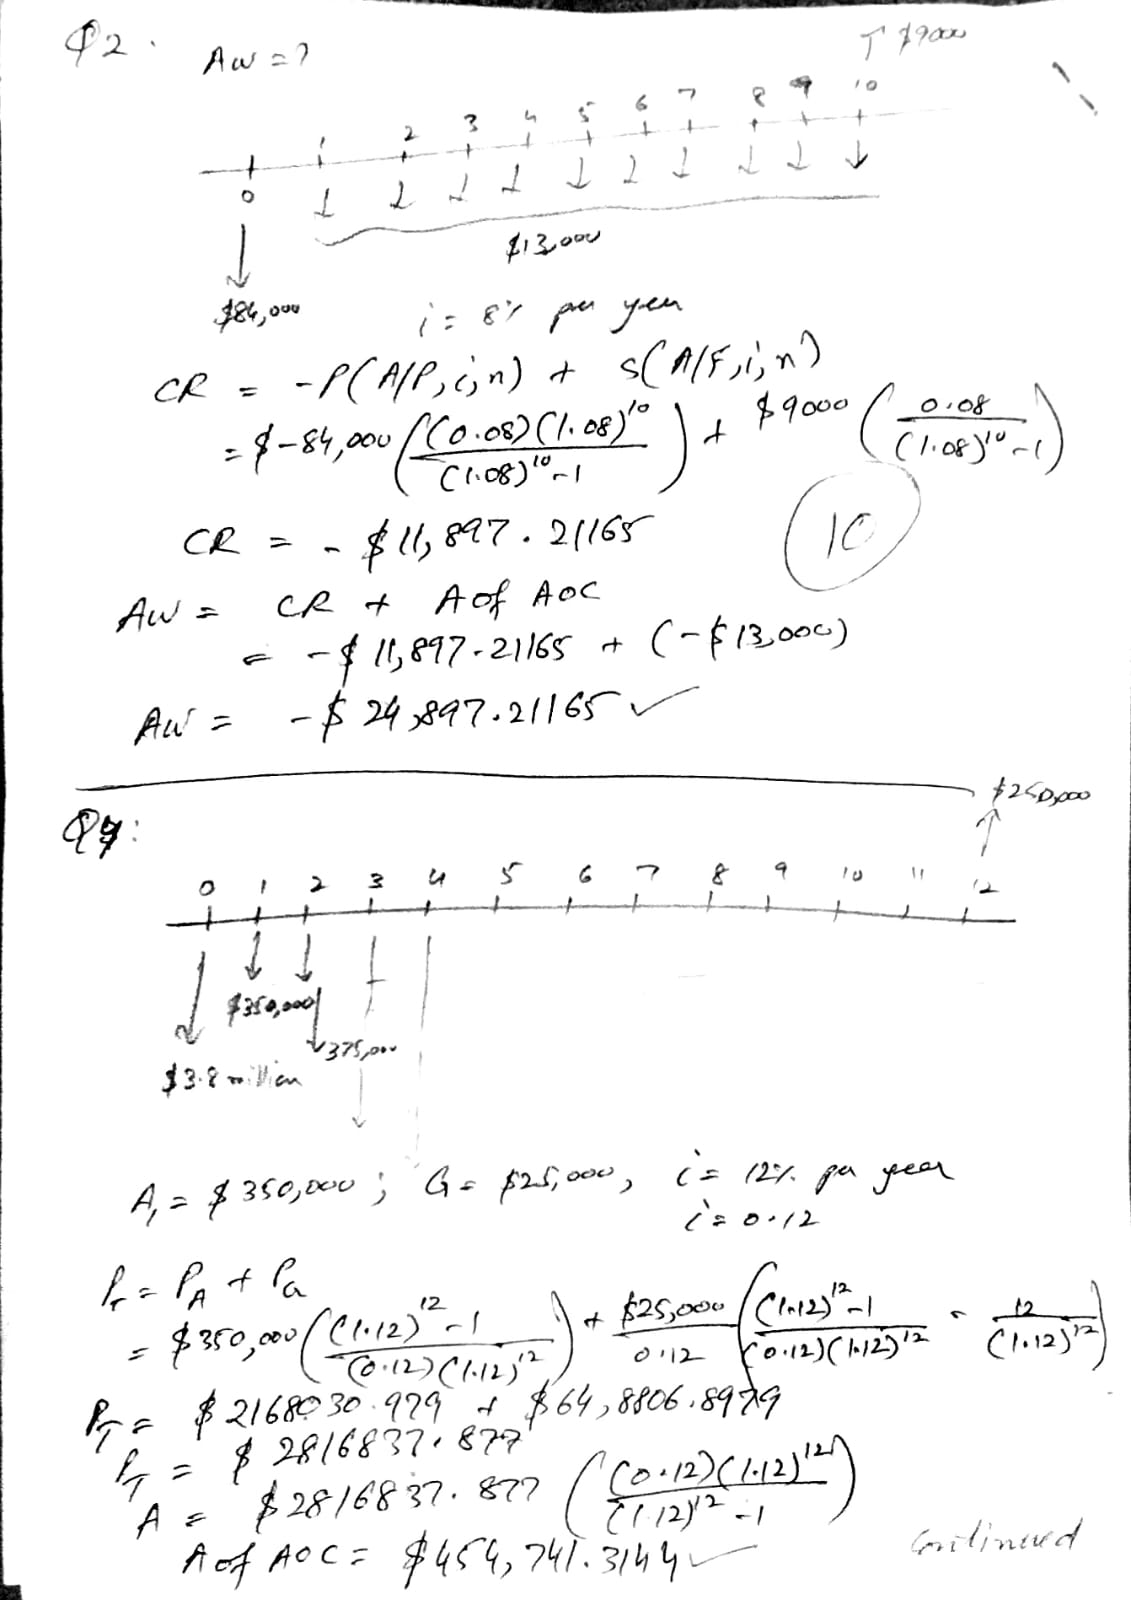 Q2.
AW = ?
↑ $9000
1 2 3 4 5 6 7 8 9 10
0
$13,000
$84,000
i = 8% per year
CR = -P(A/P, i, n) + S(A/F, i, n)
= $-84,000 ((0.08)(1.08)^10 / (1.08)^10 - 1) + $9000 (0.08 / (1.08)^10 - 1)
CR = - $11,897.21165
10
AW = CR + A of AOC
= - $11,897.21165 + (-$13,000)
AW = - $24,897.21165 ✓
$250,000
Q4:
0 1 2 3 4 5 6 7 8 9 10 11 12
$350,000
375,000
$3.8 million
A1 = $350,000; G = $25,000, i = 12% per year
i = 0.12
PT = PA + PG
= $350,000 ((1.12)^12 - 1 / (0.12)(1.12)^12) + $25,000 / 0.12 ((1.12)^12 - 1 / (0.12)(1.12)^12 - 12 / (1.12)^12)
PT = $2168030.979 + $64,8806.8979
PT = $2816837.877
A = $2816837.877 ((0.12)(1.12)^12 / (1.12)^12 - 1)
A of AOC = $454,741.3144 ✓
Continued